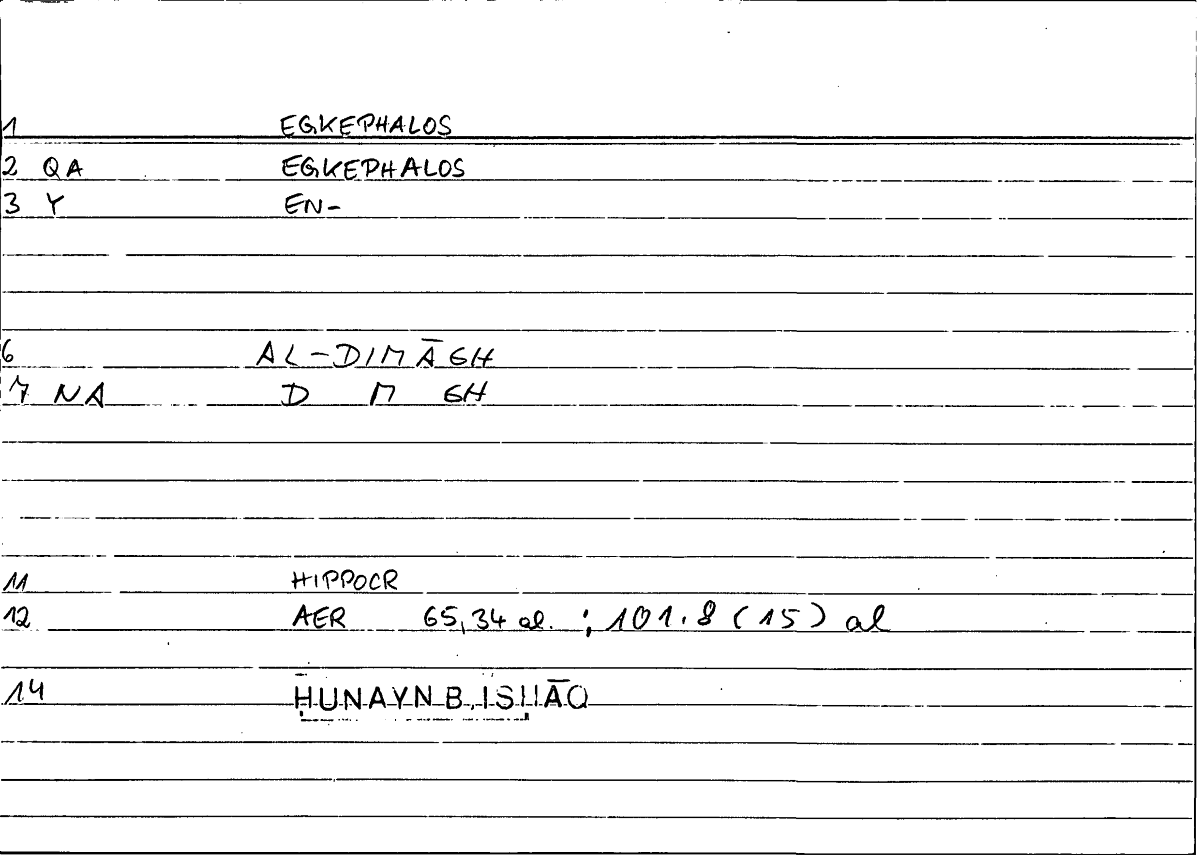 1 EGKEPHALOS
2 QA EGKEPHALOS
3 Y EN-
6 AL-DIMĀGH
7 NA D M GH
11 HIPPOCR
12 AER 65,34 al. ; 101.8 (15) al
14 ḤUNAYN B. ISḤĀQ